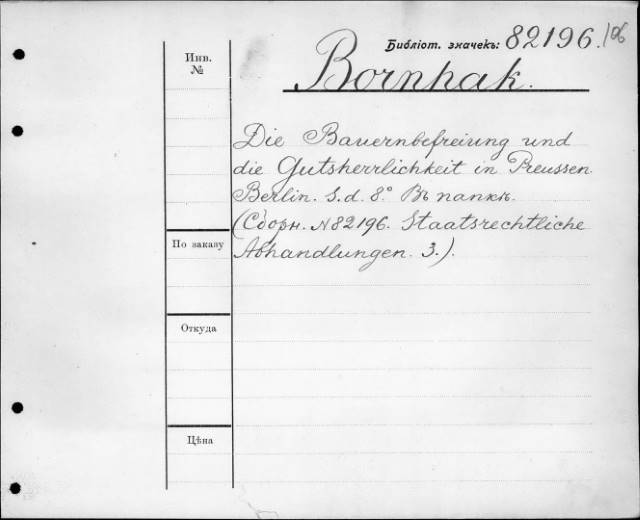 Библіот. значекъ: 82196./06
Инв.
№
Bornhak.
Die Bauernbefreiung und
die Gutsherrlichkeit in Preussen.
Berlin. S.d. 8.° Въ папкѣ.
(Сборн. №82196. Staatsrechtliche
Abhandlungen. 3.).
По заказу
Откуда
Цѣна